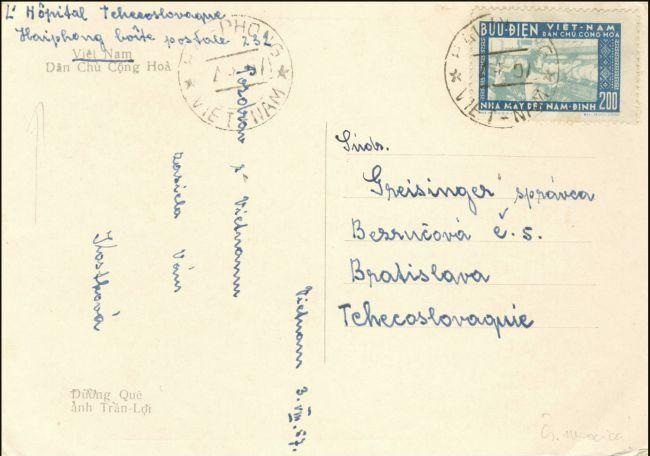 L' Hôpital Tchecoslovaque
Haiphong boîte postale 232
Việt Nam
Dân Chủ Cộng Hoà
HAIPHONG
VIET-NAM
BƯU-ĐIỆN VIỆT-NAM
DÂN CHỦ CỘNG HÒA
200
NHÀ MÁY DỆT NAM-ĐỊNH
VIET-NAM
Pozdrav z Vietnamu
zasiela Vám
Kostková
Vietnam 3.VIII.57.
Súdr.
Greisinger správca
Bezručová č. 5.
Bratislava
Tchecoslovaquie
Đường Quê
ảnh Trần-Lợi